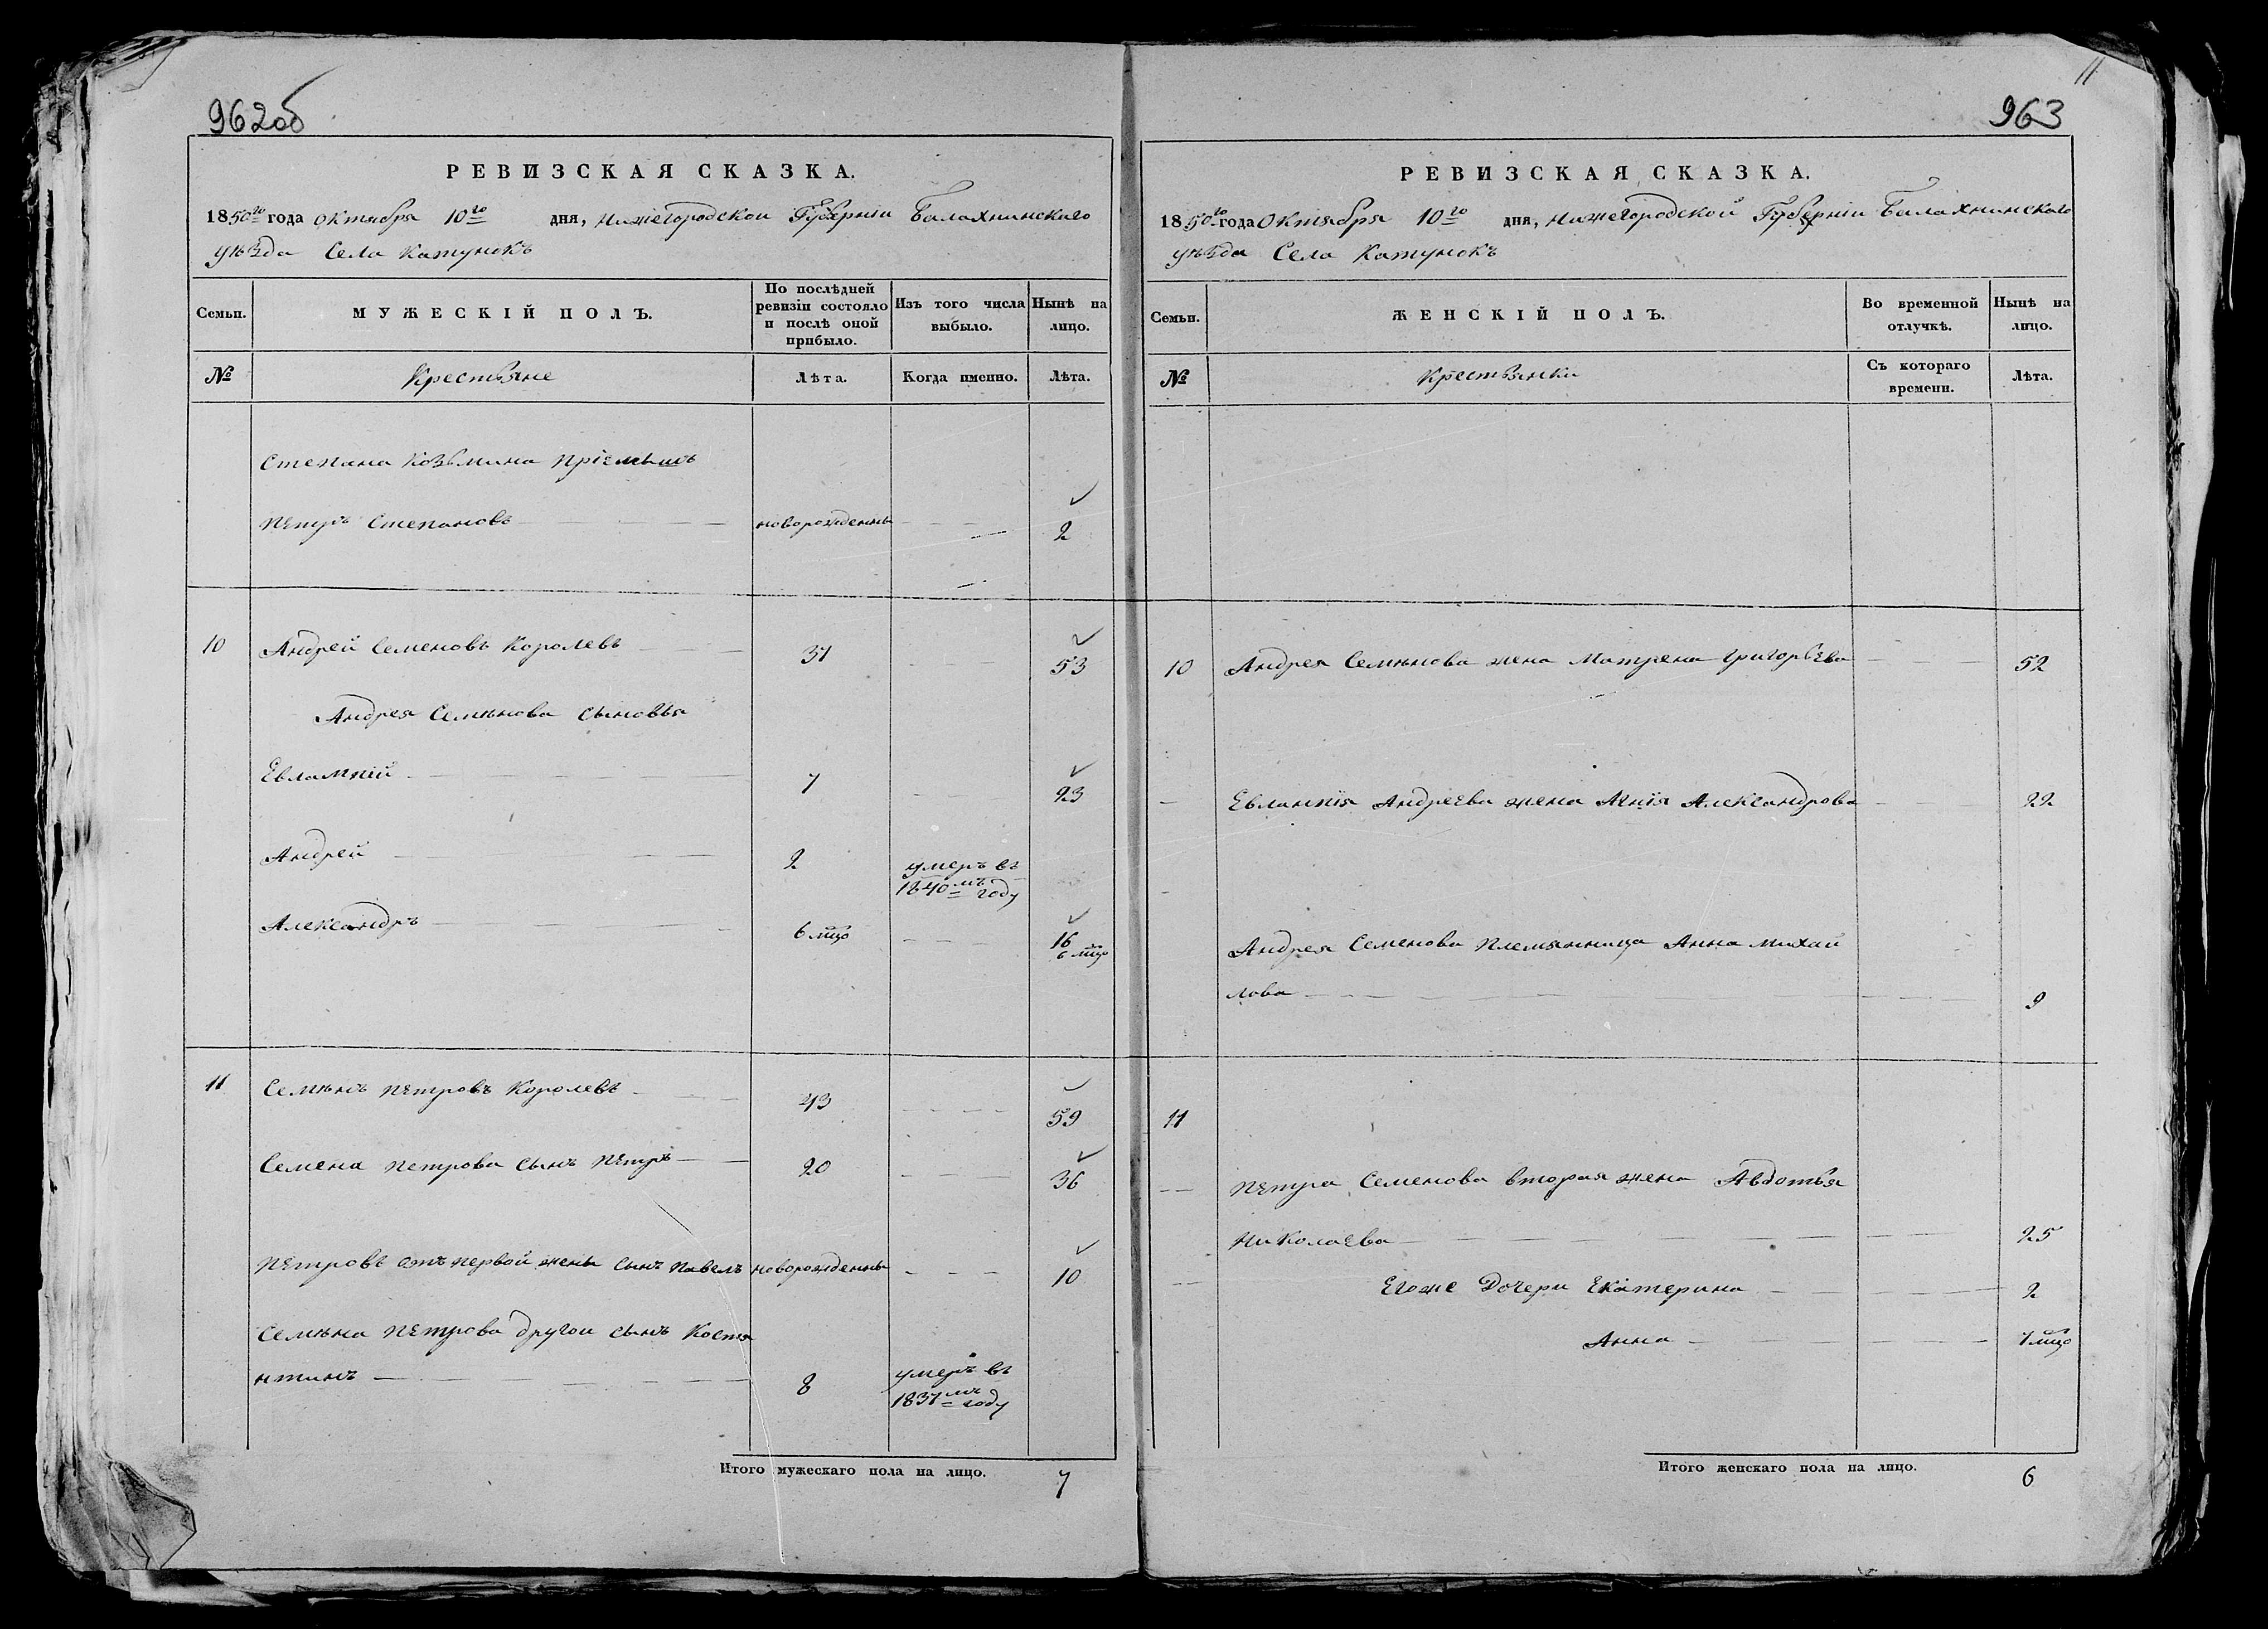 962об
РЕВИЗСКАЯ СКАЗКА.
1850го года Октября 10го дня, Нижегородской Губерніи Балахнинскаго
уѣзда Села Катунокъ
Семьи. МУЖЕСКІЙ ПОЛЪ. По послѣдней ревизіи состояло и послѣ оной прибыло. Изъ того числа выбыло. Нынѣ на лицо.
№ Крестьяне Лѣта. Когда именно. Лѣта.
Степана Козьмина пріемышъ
Петръ Степановъ новорожденны 2
10 Андрей Семеновъ Королевъ 37 53
Андрея Семенова сыновья
Евлампій 7 23
Андрей 2 умеръ въ 1840мъ году
Александръ 6 мцо 16 6 мцо
11 Семенъ Петровъ Королевъ 43 59
Семена Петрова сынъ Петръ 20 36
Петровъ отъ первой жены сынъ Павелъ новорожденны 10
Семена Петрова другои сынъ Конста
нтинъ 8 умеръ въ 1837мъ году
Итого мужескаго пола на лицо. 7
11
963
РЕВИЗСКАЯ СКАЗКА.
1850го года Октября 10го дня, Нижегородской Губерніи Балахнинскаго
уѣзда Села Катунокъ
Семьи. ЖЕНСКІЙ ПОЛЪ. Во временной отлучкѣ. Нынѣ на лицо.
№ Крестьянки Съ котораго времени. Лѣта.
10 Андрея Семенова жена Матрена Григорьева 52
Евлампія Андреева жена Александрова 22
Андрея Семенова племянница Анна Михаи
лова 9
11
Петра Семенова вторая жена Авдотья
Николаева 25
Егоже Дочери Екатерина 2
Анна 7 мцо
Итого женскаго пола на лицо. 6